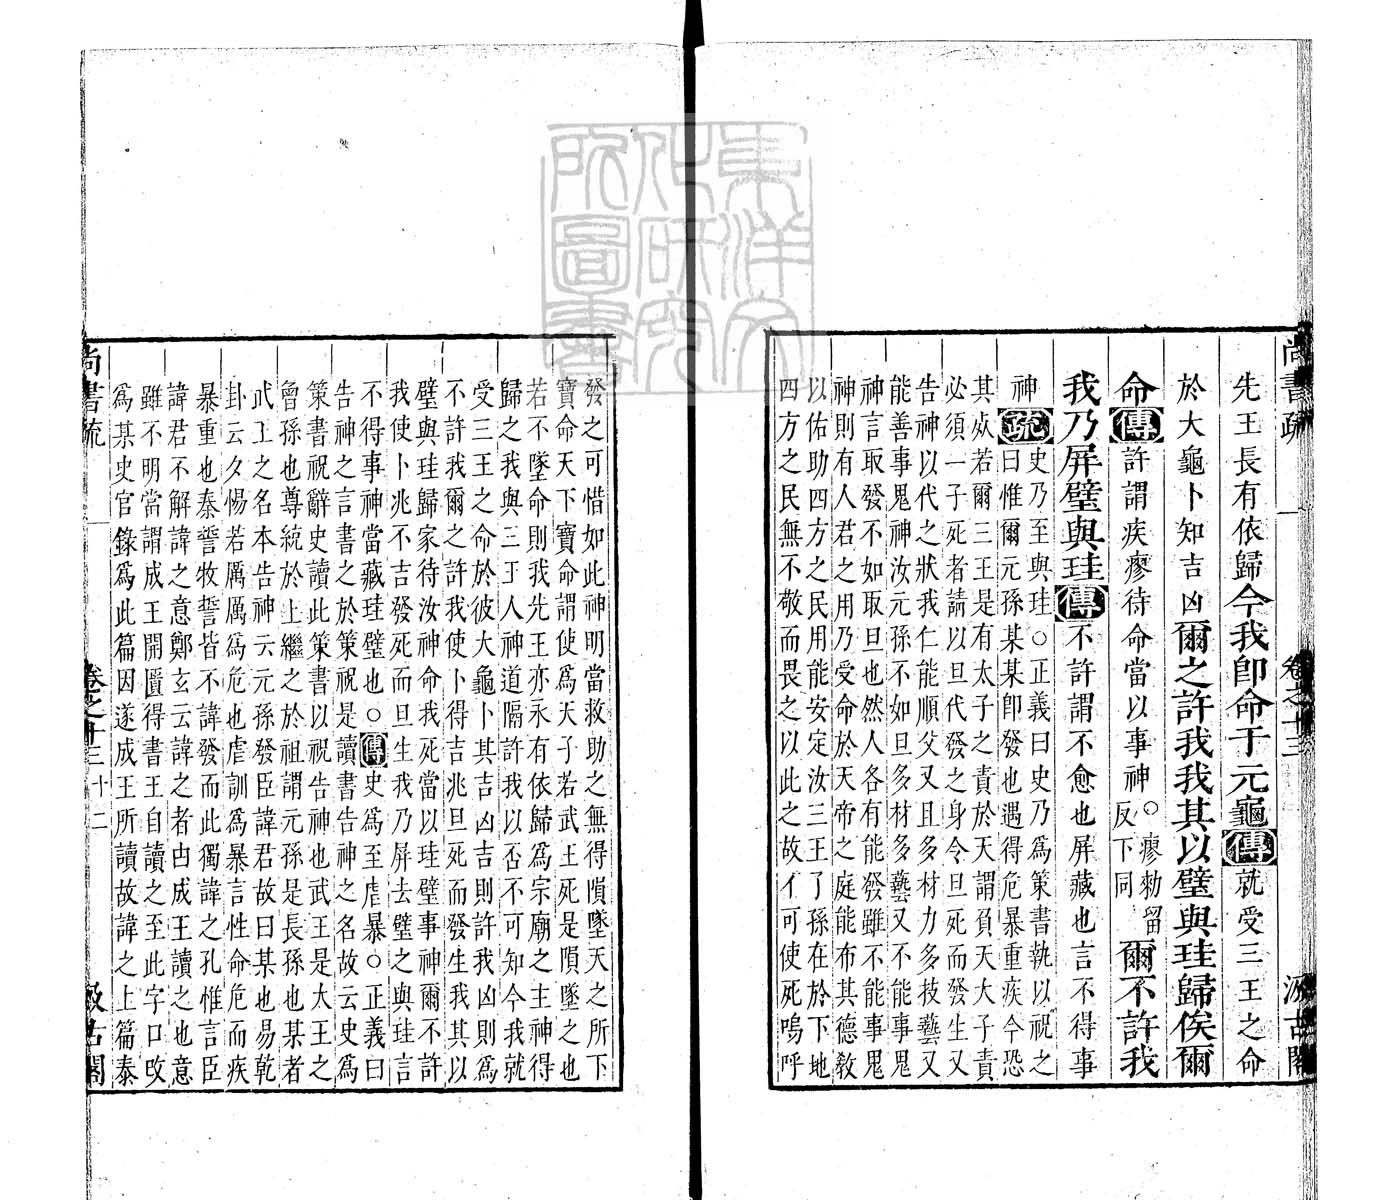 先王長有依歸今我卽命于元龜傳就受三王之命
於大龜卜知吉凶爾之許我我其以璧與珪歸俟爾
命傳許謂疾瘳待命當以事神○瘳勑留反下同爾不許我
我乃屏璧與珪傳不許謂不愈也屏藏也言不得事
神疏史乃至與珪○正義曰史乃爲策書執以祝之
曰惟爾元孫某某卽發也遇得危暴重疾今恐
其死若爾三王是有太子之責於天謂負天大子責
必須一子死者請以旦代發之身令旦死而發生又
告神以代之狀我仁能順父又且多材力多技藝又
能善事鬼神汝元孫不如旦多材多藝又不能事鬼
神言取發不如取旦也然人各有能發雖不能事鬼
神則有人君之用乃受命於天帝之庭能布其德敎
以佑助四方之民用能安定汝三王子孫在於下地
四方之民無不敬而畏之以此之故不可使死嗚呼
發之可惜如此神明當救助之無得隕墜天之所下
寶命天下寶命謂使爲天子若武王死是隕墜之也
若不墜命則我先王亦永有依歸爲宗廟之主神得
歸之我與三王人神道隔許我以否不可知今我就
受三王之命於彼大龜卜其吉凶吉則許我凶則爲
不許我爾之許我使卜得吉兆旦死而發生我其以
璧與珪歸家待汝神命我死當以珪璧事神爾不許
我使卜兆不吉發死而旦生我乃屏去璧之與珪言
不得事神當藏珪璧也○傳史爲至虐暴○正義曰
告神之言書之於策祝是讀書告神之名故云史爲
策書祝辭史讀此策書以祝告神也武王是大王之
曾孫也尊統於上繼之於祖謂元孫是長孫也某者
武王之名本告神云元孫發臣諱君故曰某也易乾
卦云夕惕若厲厲爲危也虐訓爲暴言性命危而疾
暴重也秦誓牧誓皆不諱發而此獨諱之孔惟言臣
諱君不解諱之意鄭玄云諱之者由成王讀之也意
雖不明當謂成王開匱得書王自讀之至此字口改
爲某史官錄爲此篇因遂成王所讀故諱之上篇泰
尚書疏
卷之十三
十二
汲古閣
東洋文化硏究所圖書